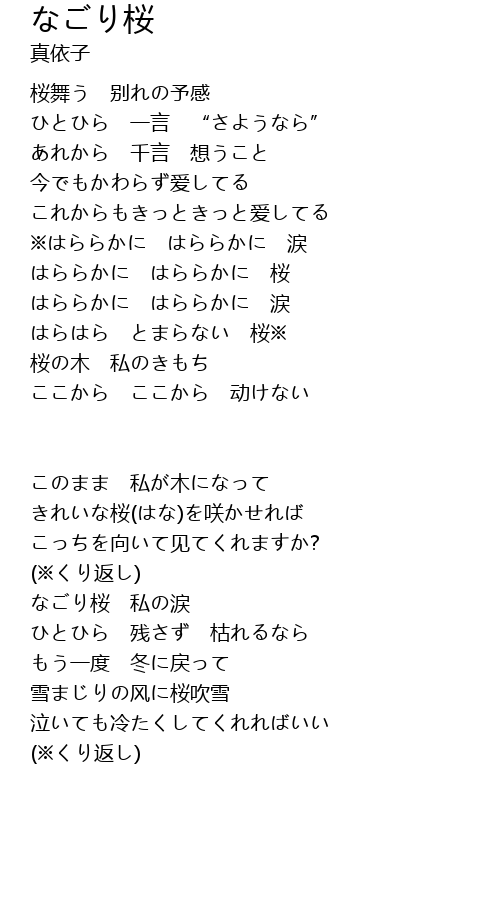 なごり桜
真依子
桜舞う　別れの予感
ひとひら　一言　“さようなら”
あれから　千言　想うこと
今でもかわらず爱してる
これからもきっときっと爱してる
※はららかに　はららかに　涙
はららかに　はららかに　桜
はららかに　はららかに　涙
はらはら　とまらない　桜※
桜の木　私のきもち
ここから　ここから　动けない
このまま　私が木になって
きれいな桜(はな)を咲かせれば
こっちを向いて见てくれますか?
(※くり返し)
なごり桜　私の涙
ひとひら　残さず　枯れるなら
もう一度　冬に戻って
雪まじりの风に桜吹雪
泣いても冷たくしてくれればいい
(※くり返し)